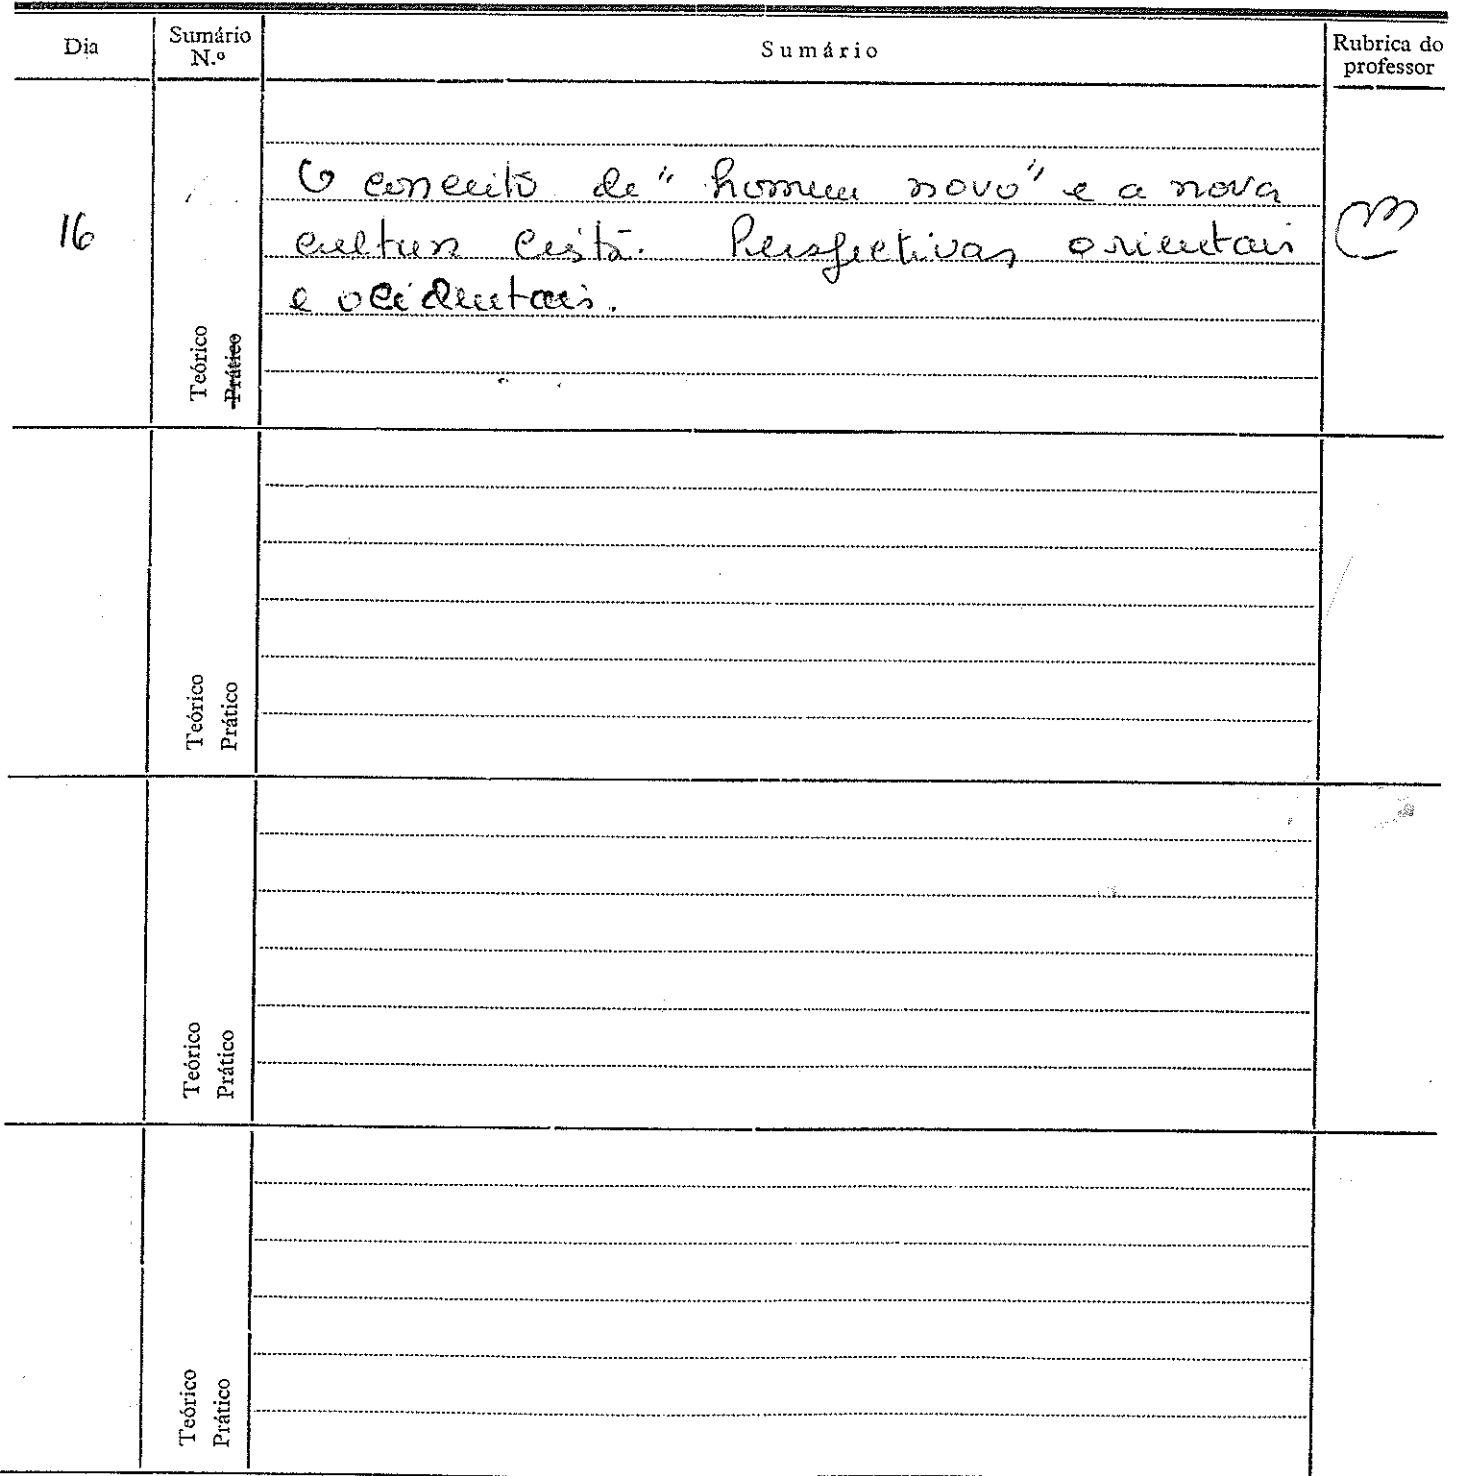 Dia
Sumário N.º
Sumário
Rubrica do professor
16
O conceito de "homem novo" e a nova
cultura cristã. Perspectivas orientais
e ocidentais.
Teórico
Prático
Teórico
Prático
Teórico
Prático
Teórico
Prático